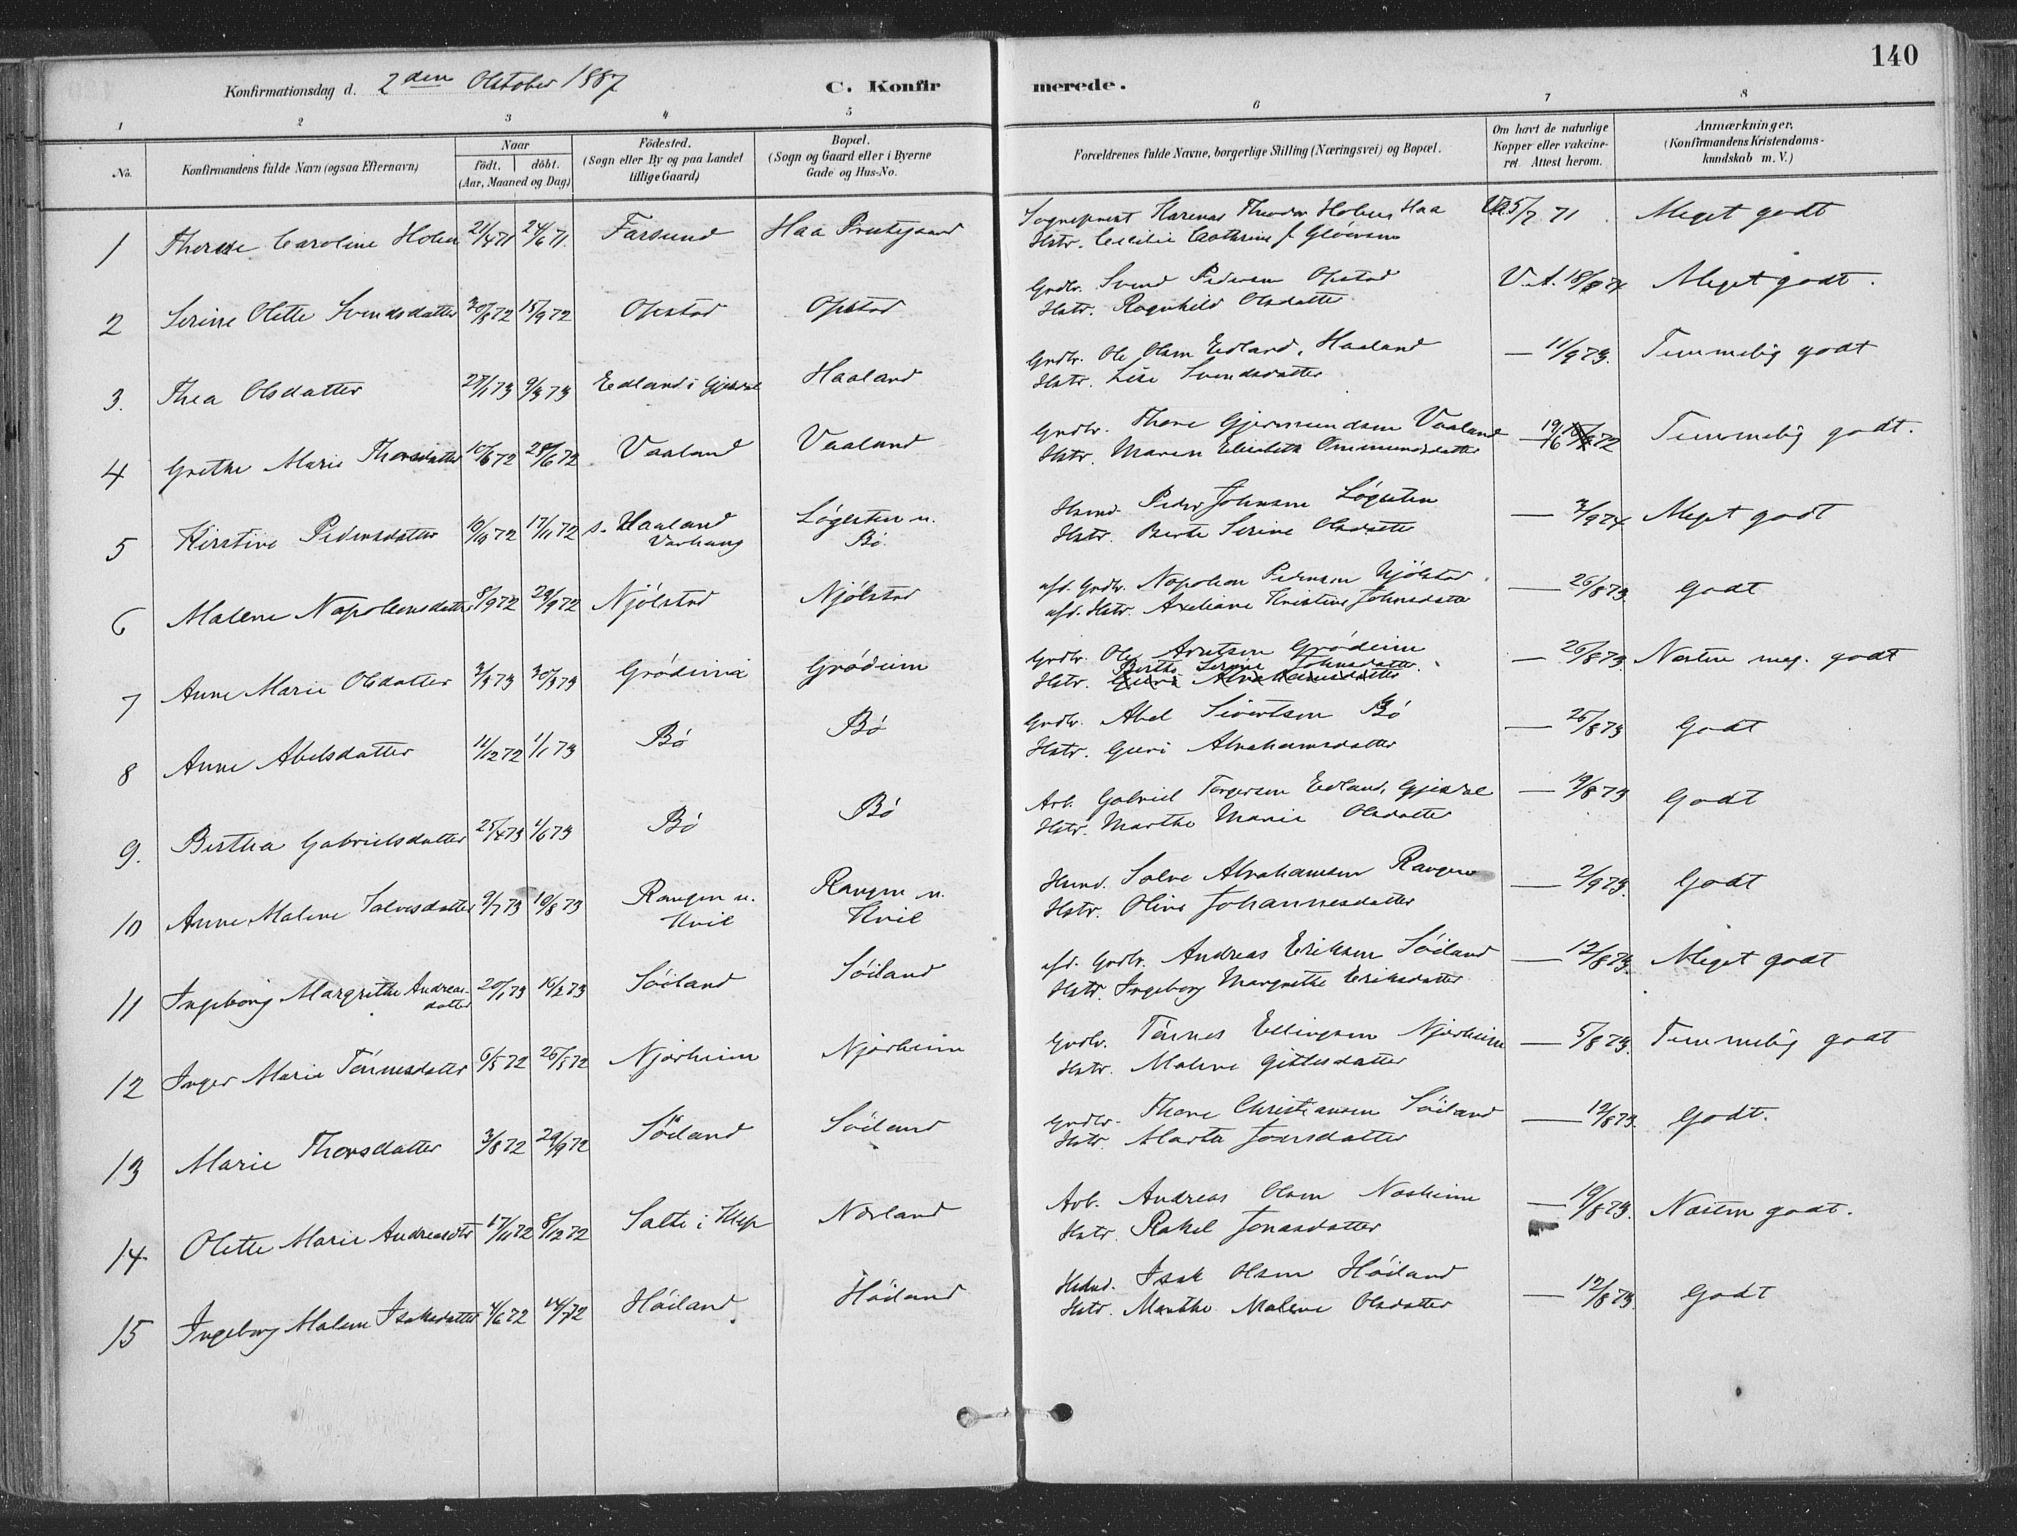 140
Konfirmationsdag d. 2den Oktober 1887 C. Konfirmerede.
1 2 3 4 5 6 7 8
No. Konfirmandens fulde Navn (ogsaa Efternavn) Naar født. døbt. (Aar, Maaned og Dag) Fødested. (Sogn eller By og paa Landet tillige Gaard) Bopæl. (Sogn og Gaard eller i Byerne Gade og Hus-No. Forældrenes fulde Navne, borgerlige Stilling (Næringsvei) og Bopæl. Om havt de naturlige Kopper eller vakcineret. Attest herom. Anmærkninger. (Konfirmandens Kristendomskundskab m. V.)
1 Caroline Holm 21/4 71 24/6 71. Farsund Haa Sogneprest Theodor Haa 5/7 71. Meget godt
Hstr. Cecilie Cathrine f.
2 Serine Olette Svendsdatter 30/8 72 15/9 72 Opstad Opstad Grdbr. Svend Pedersen Opstad V.A. Meget godt.
Hstr. Ragnhild Olsdatter
3. Thea Olsdatter 27/1 73 9/3 73 Edland i Gjesdal Haaland Grdbr. Ole Olsen Edland, Haaland — 11/9 73. Temmelig godt
Hstr. Lise Svendsdatter
4 Grethe Marie Thorsdatter 10/6 72 28/6 72 Vaaland Vaaland Grdbr. Thore Gjermundsen Vaaland — 72 Temmelig godt.
Hstr. Maren Elisabeth Ommundsdatter
5 Kirstine Pedersdatter 10/10 72 17/11 72 s. Haaland Varhaug Løgesten u. Bø. Hsmd. Peder Johnsen Løgesten — 3/9 74 Meget godt
Hstr. Berte Serine Olsdatter
6 Malene Napoleonsdatter 8/9 72 29/9 72 Njølstad Njølstad afd. Grdbr. Napoleon Pedersen Njølstad. — 26/8 73. Godt
afd. Hstr. Axeliane Kristine Johnsdatter
7 Anne Marie Olsdatter 3/3 73 30/3 73 Grødeim Grødeim Grdbr. Ole Grødeim — 26/8 73 Næsten meg. godt
Hstr. Berthe Serine Johnsdatter.
8 Anne Abelsdatter 11/12 72 1/1 73 Bø Bø Grdbr. Abel Sivertsen Bø — 26/8 73 Godt
Hstr. Guri Abrahamsdatter
9. Bertha Gabrielsdatter 25/4 73 1/6 73 Bø Bø Arb. Gabriel Torgersen Edland, Gjesdal — 19/8 73 Godt
Hstr. Marthe Marie Olsdatter
10 Anne Malene Salvesdatter 9/7 73 10/8 73 Rangen u. Kvil Rangen u. Kvil Hsmd. Salve Abrahamsen Rangen — 2/9 73. Godt
Hstr. Oline Johannesdatter
11 Ingeborg Margrethe Andreasdatter 20/1 73 16/2 73 Søiland Søiland afd. Grdbr. Andreas Eriksen Søiland — 12/8 73. Meget godt
Hstr. Ingeborg Margrethe Eriksdatter
12 Inger Marie Tønnesdatter 6/5 72 26/5 72 Njærheim Njærheim Grdbr. Tønnes Ellingsen Njærheim — 5/8 73. Temmelig godt
Hstr. Malene Gitlesdatter
13 Marie Thorsdatter 3/8 72 29/9 72 Søiland Søiland Grdbr. Thore Christiansen Søiland — 12/8 73. Godt.
Hstr. Marta Jonsdatter
14 Olette Marie Andreasdtr 17/11 72 8/12 72 Salte i Klep Nærland Arb. Andreas Olsen Nærheim — 19/8 73. Næsten godt.
Hstr. Rakel Jonasdatter
15 Ingeborg Malene Isaksdatter 4/6 72 14/7 72 Høiland Høiland Hsmd. Isak Olsen Høiland — 12/8 73. Godt
Hstr. Marthe Malene Olsdatter